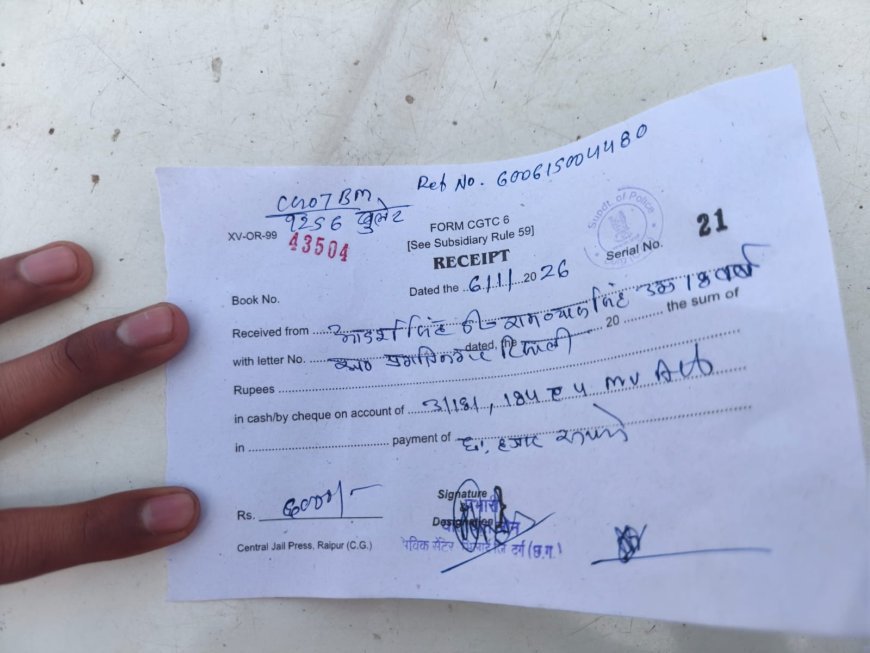 Ref No. 600615004480
CG07BM
9256 बुलेट
XV-OR-99 43504
FORM CGTC 6
[See Subsidiary Rule 59]
RECEIPT
Supdt. of Police
Serial No. 21
Book No.
Dated the 6/1/ 2026
Received from आदर्श सिंह उम्र 18 वर्ष
with letter No. dated, the 20 the sum of
Rupees
in cash/by cheque on account of 3/181, 184 MV Act
in payment of छः हजार रूपये
Rs. 6000/-
Signature
प्रभारी
Designation
Central Jail Press, Raipur (C.G.)
(छ.ग.)